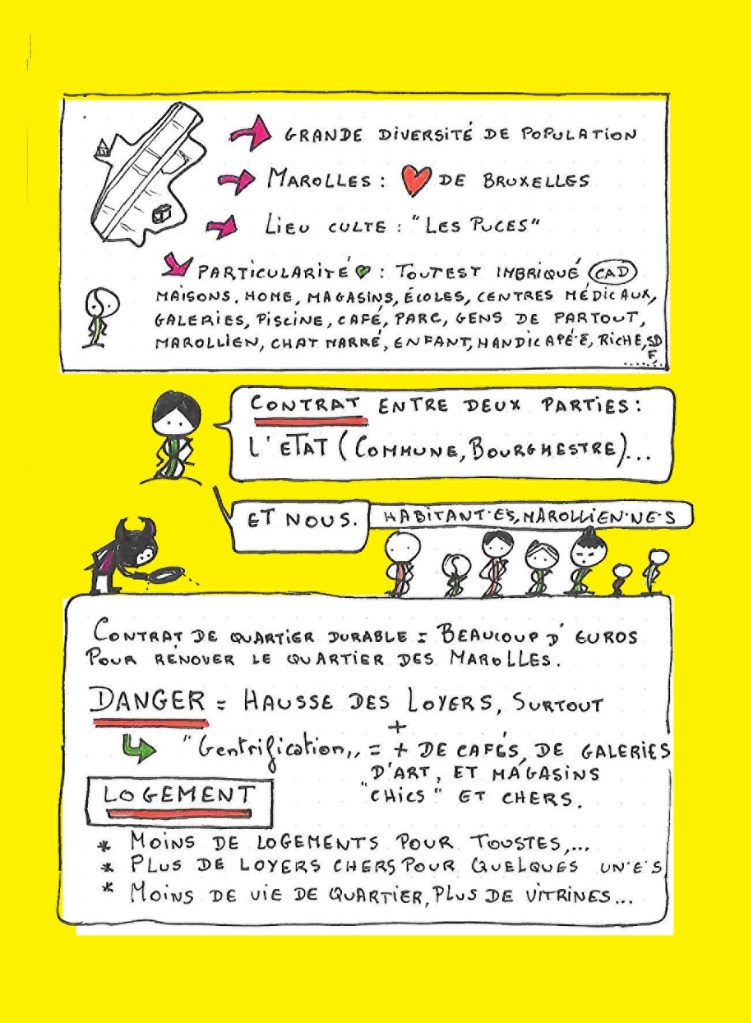 GRANDE DIVERSITÉ DE POPULATION
MAROLLES : DE BRUXELLES
LIEU CULTE : "LES PUCES"
PARTICULARITÉ : TOUT EST IMBRIQUÉ CAD
MAISONS, HOME, MAGASINS, ÉCOLES, CENTRES MÉDICAUX,
GALERIES, PISCINE, CAFÉ, PARC, GENS DE PARTOUT,
MAROLLIEN, CHAT MARRÉ, ENFANT, HANDICAPÉ·E, RICHE, SDF......
CONTRAT ENTRE DEUX PARTIES :
L'ETAT (COMMUNE, BOURGMESTRE)...
ET NOUS. HABITANT·ES, MAROLLIEN·NE·S
CONTRAT DE QUARTIER DURABLE = BEAUCOUP D'EUROS
POUR RÉNOVER LE QUARTIER DES MAROLLES.
DANGER = HAUSSE DES LOYERS, SURTOUT
+
"Gentrification,, = + DE CAFÉS, DE GALERIES
D'ART, ET MAGASINS
"CHICS" ET CHERS.
LOGEMENT
* MOINS DE LOGEMENTS POUR TOUSTES,...
* PLUS DE LOYERS CHERS POUR QUELQUES UN·E·S
* MOINS DE VIE DE QUARTIER, PLUS DE VITRINES...